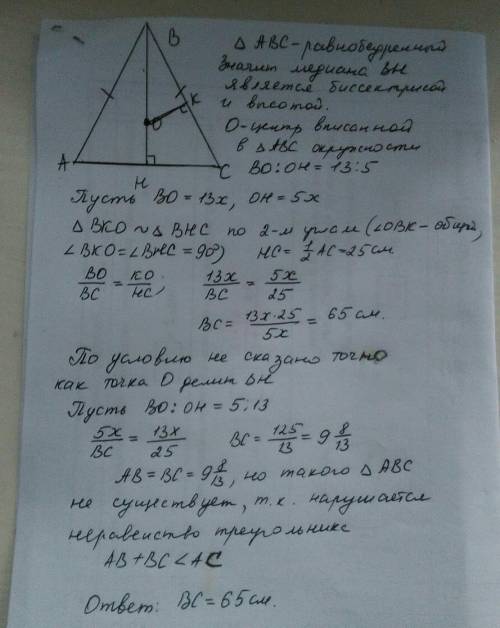 B
K
O
A
H
C
Δ ABC-равнобедренный
Значит медиана BH
является биссектрисой
и высотой.
O-центр вписанной
в Δ ABC окружности
BO:OH = 13:5
Пусть BO = 13x, OH = 5x
Δ BKO ~ Δ BHC по 2-м углам (∠OBK-общий,
∠BKO=∠BHC = 90°) HC= 1/2 AC=25см
BO/BC = KO/HC; 13x/BC = 5x/25
BC= 13x·25/5x = 65 см.
По условию не сказано точно
как точка O делит BH
Пусть BO:OH = 5:13
5x/BC = 13x/25 BC= 125/13 = 9 8/13
AB=BC= 9 8/13, но такого Δ ABC
не существует, т.к. нарушается
неравенство треугольника
AB+BC<AC
Ответ: BC=65см.